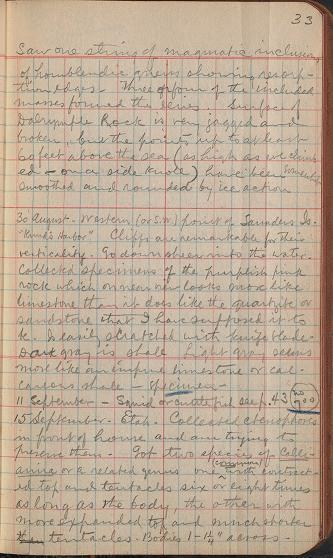 33
Saw one string of magmatic inclusions
of hornblendic gneiss showing resorp-
tion edges. Three or four of the included
masses formed the lines. Surface of
Dalrymple Rock is very jagged and
broken, but the points up to at least
60 feet above the sea (as high as we climb
ed - on a side knole) have been somewhat
smoothed and rounded by ice action
30 August. Western (or S.W.) point of Saunders Is.
"Harbor" Cliffs are remarkable for their
verticality. Go down sheer into the water.
Collected specimens of the purplish pink
rock which on near view looks more like
limestone than it does like the quartzite or
sandstone that I have supposed it to
be. Is easily scratched with knife blade.
Dark gray is shale Light gray seems
more like an impure limestone or cal-
careous shale - Specimen -
11 September - Squid or cuttlefish see p. 43 no 200
15 September. Etah. Collected ctenophores
in front of house and are trying to
preserve them. Got two species of Calli-
anira or a related genus one (common) with contract-
ed top and tentacles six or eight times
as long as the body, the other with
more expanded top and much shorter
tentacles. Bodies 1-1¼" across.